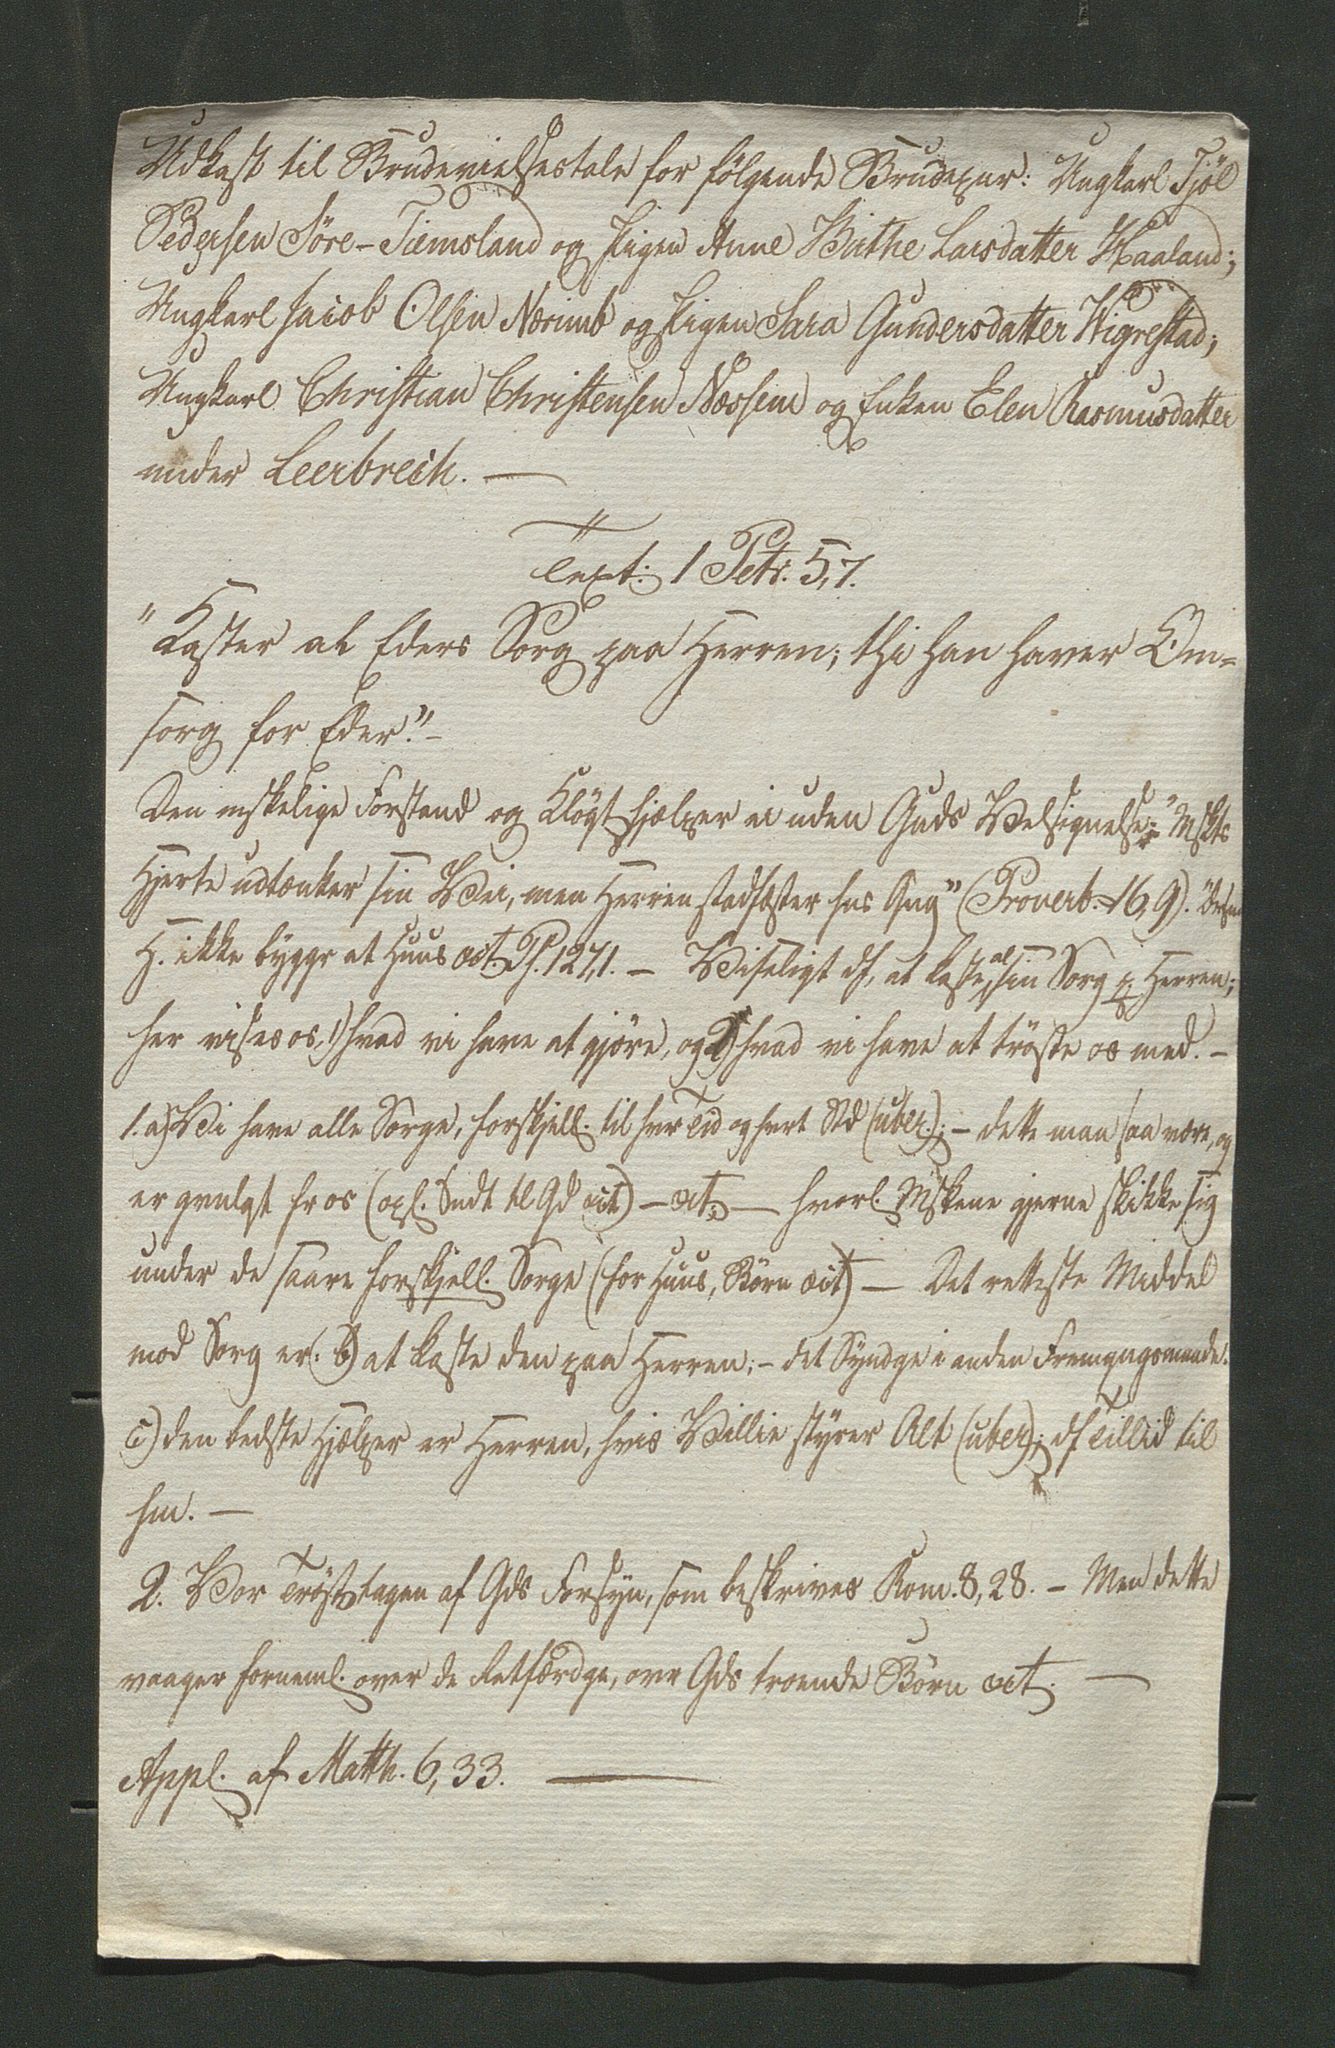 Udkast til Brudevielsestale for følgende Brudepar: Ungkarl Tjöl
Pedersen Söre-Tiemsland og Pigen Anne Birthe Larsdatter Haaland;
Ungkarl Jacob Olsen Nærimb og Pigen Sara Gundersdatter Wigrestad;
Ungkarl Christian Christensen Næssem og Enken Elen Rasmusdatter
under Leerbreck. —
Text: 1 Petr. 5,7.
"Kaster al Eders Sorg paa Herren; thi han haver Om=
sorg for Eder." –
Den mskelige Forstand og Kløgt hjælper ei uden Guds Velsignelse: "Mskts
Hjerte udtænker sin Vei, men Herren stadfæster hns Gng" (Proverb. 16,9).
H. ikke bygge et Huus cet. Ps. 127,1. – Viseligt df, at kaste al sin Sorg p Herren;
her vises os, 1) hvad vi have at gjöre, og 2) hvad vi have at tröste os med. –
1. a) Vi have alle Sorge, forskjell. til hvr Tid og hvert Std (uber.); – dette maa saa være, og
er gvnlgt fr os (opl. Sndt til Gd cet) – cet; — hvorl. Mskene gjerne skikke sig
under de saare forskjell. Sorge (for Huus, Börn cet) — Det retteste Middel
mod Sorg er: b) at kaste den paa Herren; – det Syndge i anden Fremgngsmaade.
c) den bedste Hjælper er Herren, hvis Villie styrer Alt (uber); df Tillid til
hm. —
2. Vor Tröst tagen af Gds Forsyn, som beskrives Rom. 8,28. – Men dette
vaager forneml. over de Retfærdge, ovr Gds troende Börn cet. —
Appl. af Matth. 6,33. —